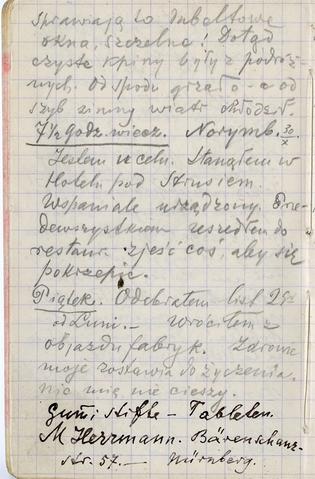 sprawiają to dubeltowe
okna, szczelne! Dotąd
czyste kpiny były z podróż-
nych. Od spodu grzało – a od
szyb zimny wiatr chłodził.
7½ godz. wiecz. Norymb. 30/X
Jestem u celu. Stanąłem w
Hotelu pod Strusiem.
Wspaniale urządzony. Prze-
dewszystkiem zeszedłem do
restaur. zjeść coś, aby się
pokrzepić.
Piątek. Odebrałem list
od Luni. – Wróciłem z
objazdu fabryk. Zdrowie
moje zostawia do życzenia.
Nic mię nie cieszy.
Gumistifte – Tabletten.
M Herrmann. Bärenschanz-
str. 57. – Nürnberg.